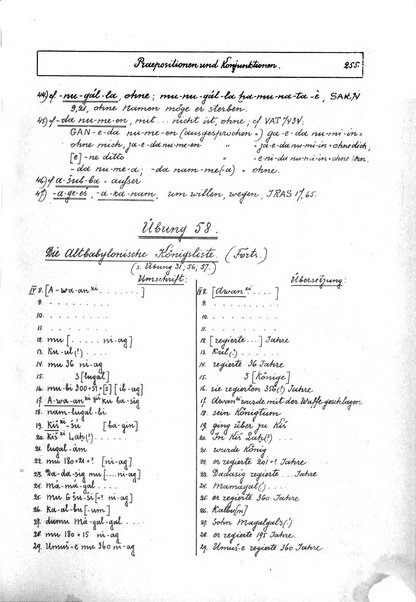 Praepositionen und Konjunktionen. 255.
44) cf -nu-gál-la, ohne; mu-nu-gál-la ḫa-mu-na-ta-è, SAK 14
9,21, ohne Namen möge er sterben.
45) cf -da nu-me-en, mit ... nicht ist, ohne; cf. VAT 7434.
GAN-e-da nu-me-en (ausgesprochen = ) ga-e-da nu-mi-in =
ohne mich, ja-e-da nu-me-en " ja-e-da nu-mi-in = ohne dich,
[e]-ne ditto " e-ni-da nu-mi-in = ohne ihn.
-da nu-me-a; -da nam-me(-a) = ohne.
46) cf a-šub-ba = außer
47) -a-ge-eš, -a-ka-nam, um willen, wegen, JRAS 17,65.
Übung 58.
Die Altbabylonische Königsliste. (Forts.)
(s. Übung 51, 56, 57.)
Umschrift: Übersetzung:
IV 8. [A-wa-an ki . . . . . . ] IV 8. [Awan ki . . . . . . ]
9. . . . . . . 9. . . . . . .
10. . . . . . . 10. . . . . . .
11. . . . . . . 11. . . . . . .
12. mu [. . . . . ni-ag] 12. [regierte . . . ] Jahre
13. Ku-ul(?) . . . 13. Kul(?) . . . .
14. mu 36 ni-ag 14. regierte 36 Jahre
15. 3 [lugal] 15. 3 [Könige]
16. mu-bi 300+51+[5] [ib-ag] 16. sie regierten 356(?) Jahre
17. A-wa-an ki giš ku ba-sig 17. Awan ki wurde mit der Waffe geschlagen
18. nam-lugal-bi 18. sein Königtum
19. Kiš ki-šú [ba-gin] 19. ging über zu Kiš
20. Kiš ki Lats(?) . . . 20. In Kiš Lats(?) . . .
21. lugal-ám 21. wurde König
22. mu 180+21+? [ni-ag] 22. er regierte 201+? Jahre
23. Da-da-sig mu [. . . ni-ag] 23. Dadasig regierte ... Jahre
24. Má-má-gal . . . . 24. Mamagal(?) . . . .
25. mu 6 šu-ši [+? ni-ag] 25. er regierte 360 Jahre
26. Ka-al-bu[-um] 26. Kalbu[m]
27. dumu Má-gal-gal . . . . 27. Sohn Magalgal's(?)
28. mu 180+15 ni-ag 28. er regierte 195 Jahre.
29. Umuš-e mu 360 ni-ag 29. Umuš-e regierte 360 Jahre